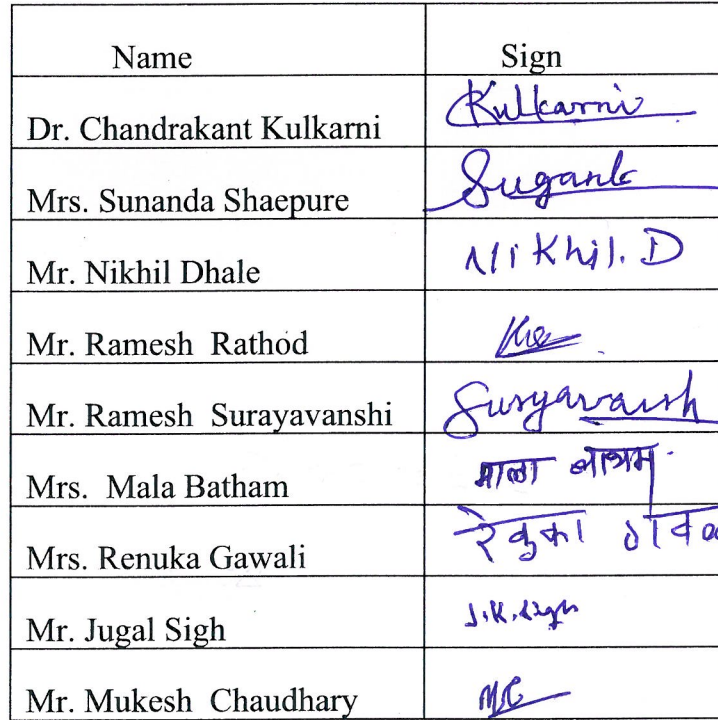 Name Sign
Dr. Chandrakant Kulkarni Kulkarni
Mrs. Sunanda Shaepure
Mr. Nikhil Dhale Nikhil. D
Mr. Ramesh Rathod
Mr. Ramesh Surayavanshi
Mrs. Mala Batham माला
Mrs. Renuka Gawali
Mr. Jugal Sigh J.K.Sigh
Mr. Mukesh Chaudhary